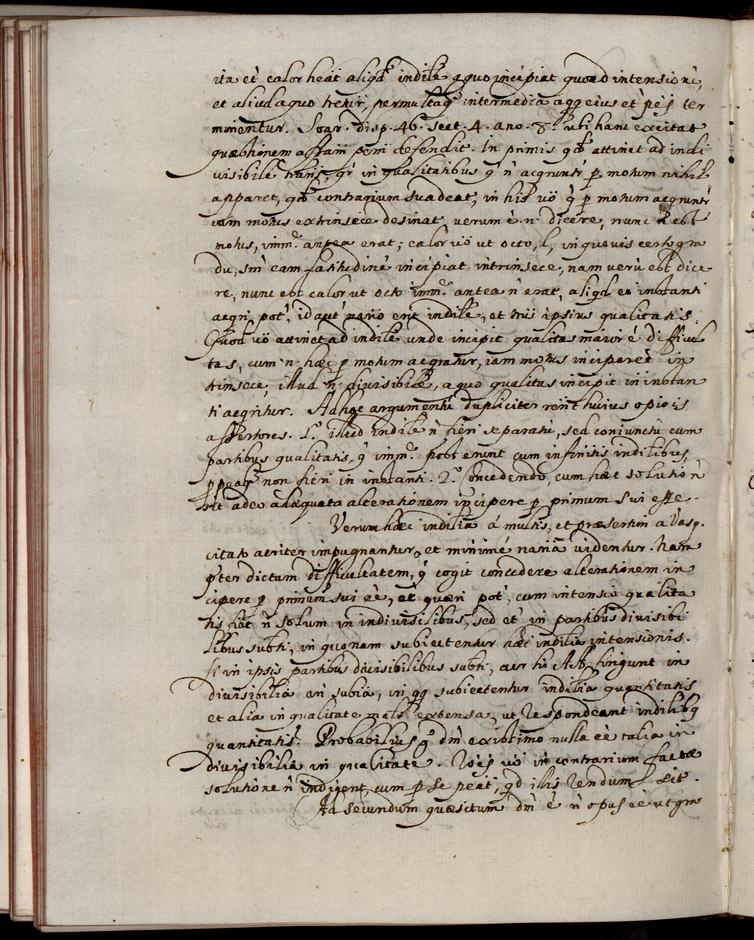 ita et calor heat aliqd indile a quo incipiat quoad intensione,
et aliud a quo trehir, per multaq intermedia aqq eius et pes ter
minentur. Soar. disp. 46. sect. 4. ano. 8. ubi hanc excitat
quaestionem affam pem defendit. In primis qd attinet ad indi
visibile trans, qr in qualitatibus q n acqruntr p motum nihil
apparet, qd contrarium suadeat, in his uo q p motum acqruntr
cum motus extrinsece desinat, verum e n dicere, nunc est
motus, imme antea erat; calor uo ut octo, l, in quovis certo gra
du, sm eam latitudine incipiat intrinsece, nam veru est dice
re, nunc est calor ut octo imme antea n erat, aliqd eo instanti
acqri pot, id aut erit indile, et ipsius qualitatis.
Quod uo attinet ad indile unde incipit qualitas maior e difficul
tas, cum n haec p motum acqratur, iam motus inciperet in
trinsece, illud n divisibile, a quo qualitas incipit in instan
ti acqritur. Ad hoc argumentu dupliciter rent huius opiois
assertores. 1.o illud indile n fieri separatu, sed coniunctu cum
partibus qualitatis, q imme post erunt cum infinitis indilibus,
non fieri in instanti. 2.o concedendo, cum haec solutio n
sit adeo adaequata alterationem incipere p primum sui esse.
Verum haec indilia a multis, et praesertim a Vasq.
citato acriter impugnantur, et minime naria videntur. Nam
pter dictam difficultatem, q cogit concedere alterationem in
cipere p primum sui ee, et quaeri pot, cum intensio qualita
tis fiat n solum in indivisilibus, sed et in partibus divisibi
libus subti, in quonam subiectentur haec indilia intensionis.
Si in ipsis partibus divisibilibus subti, cur hi Asst. fingunt in
divisibilia in subia, in qq subiectentur indilia quantitatis
et alia in qualitate extensa, ut respondeant indilibq
quantitatis. Probabilius g dm existimo nulla ee talia in
divisibilia in qualitate. Roes uo in contrarium factae
solutione n indigent, cum p se peat, qd illis rendum sit.
Ad secundum quaesitum dm e n opus ee ut gra